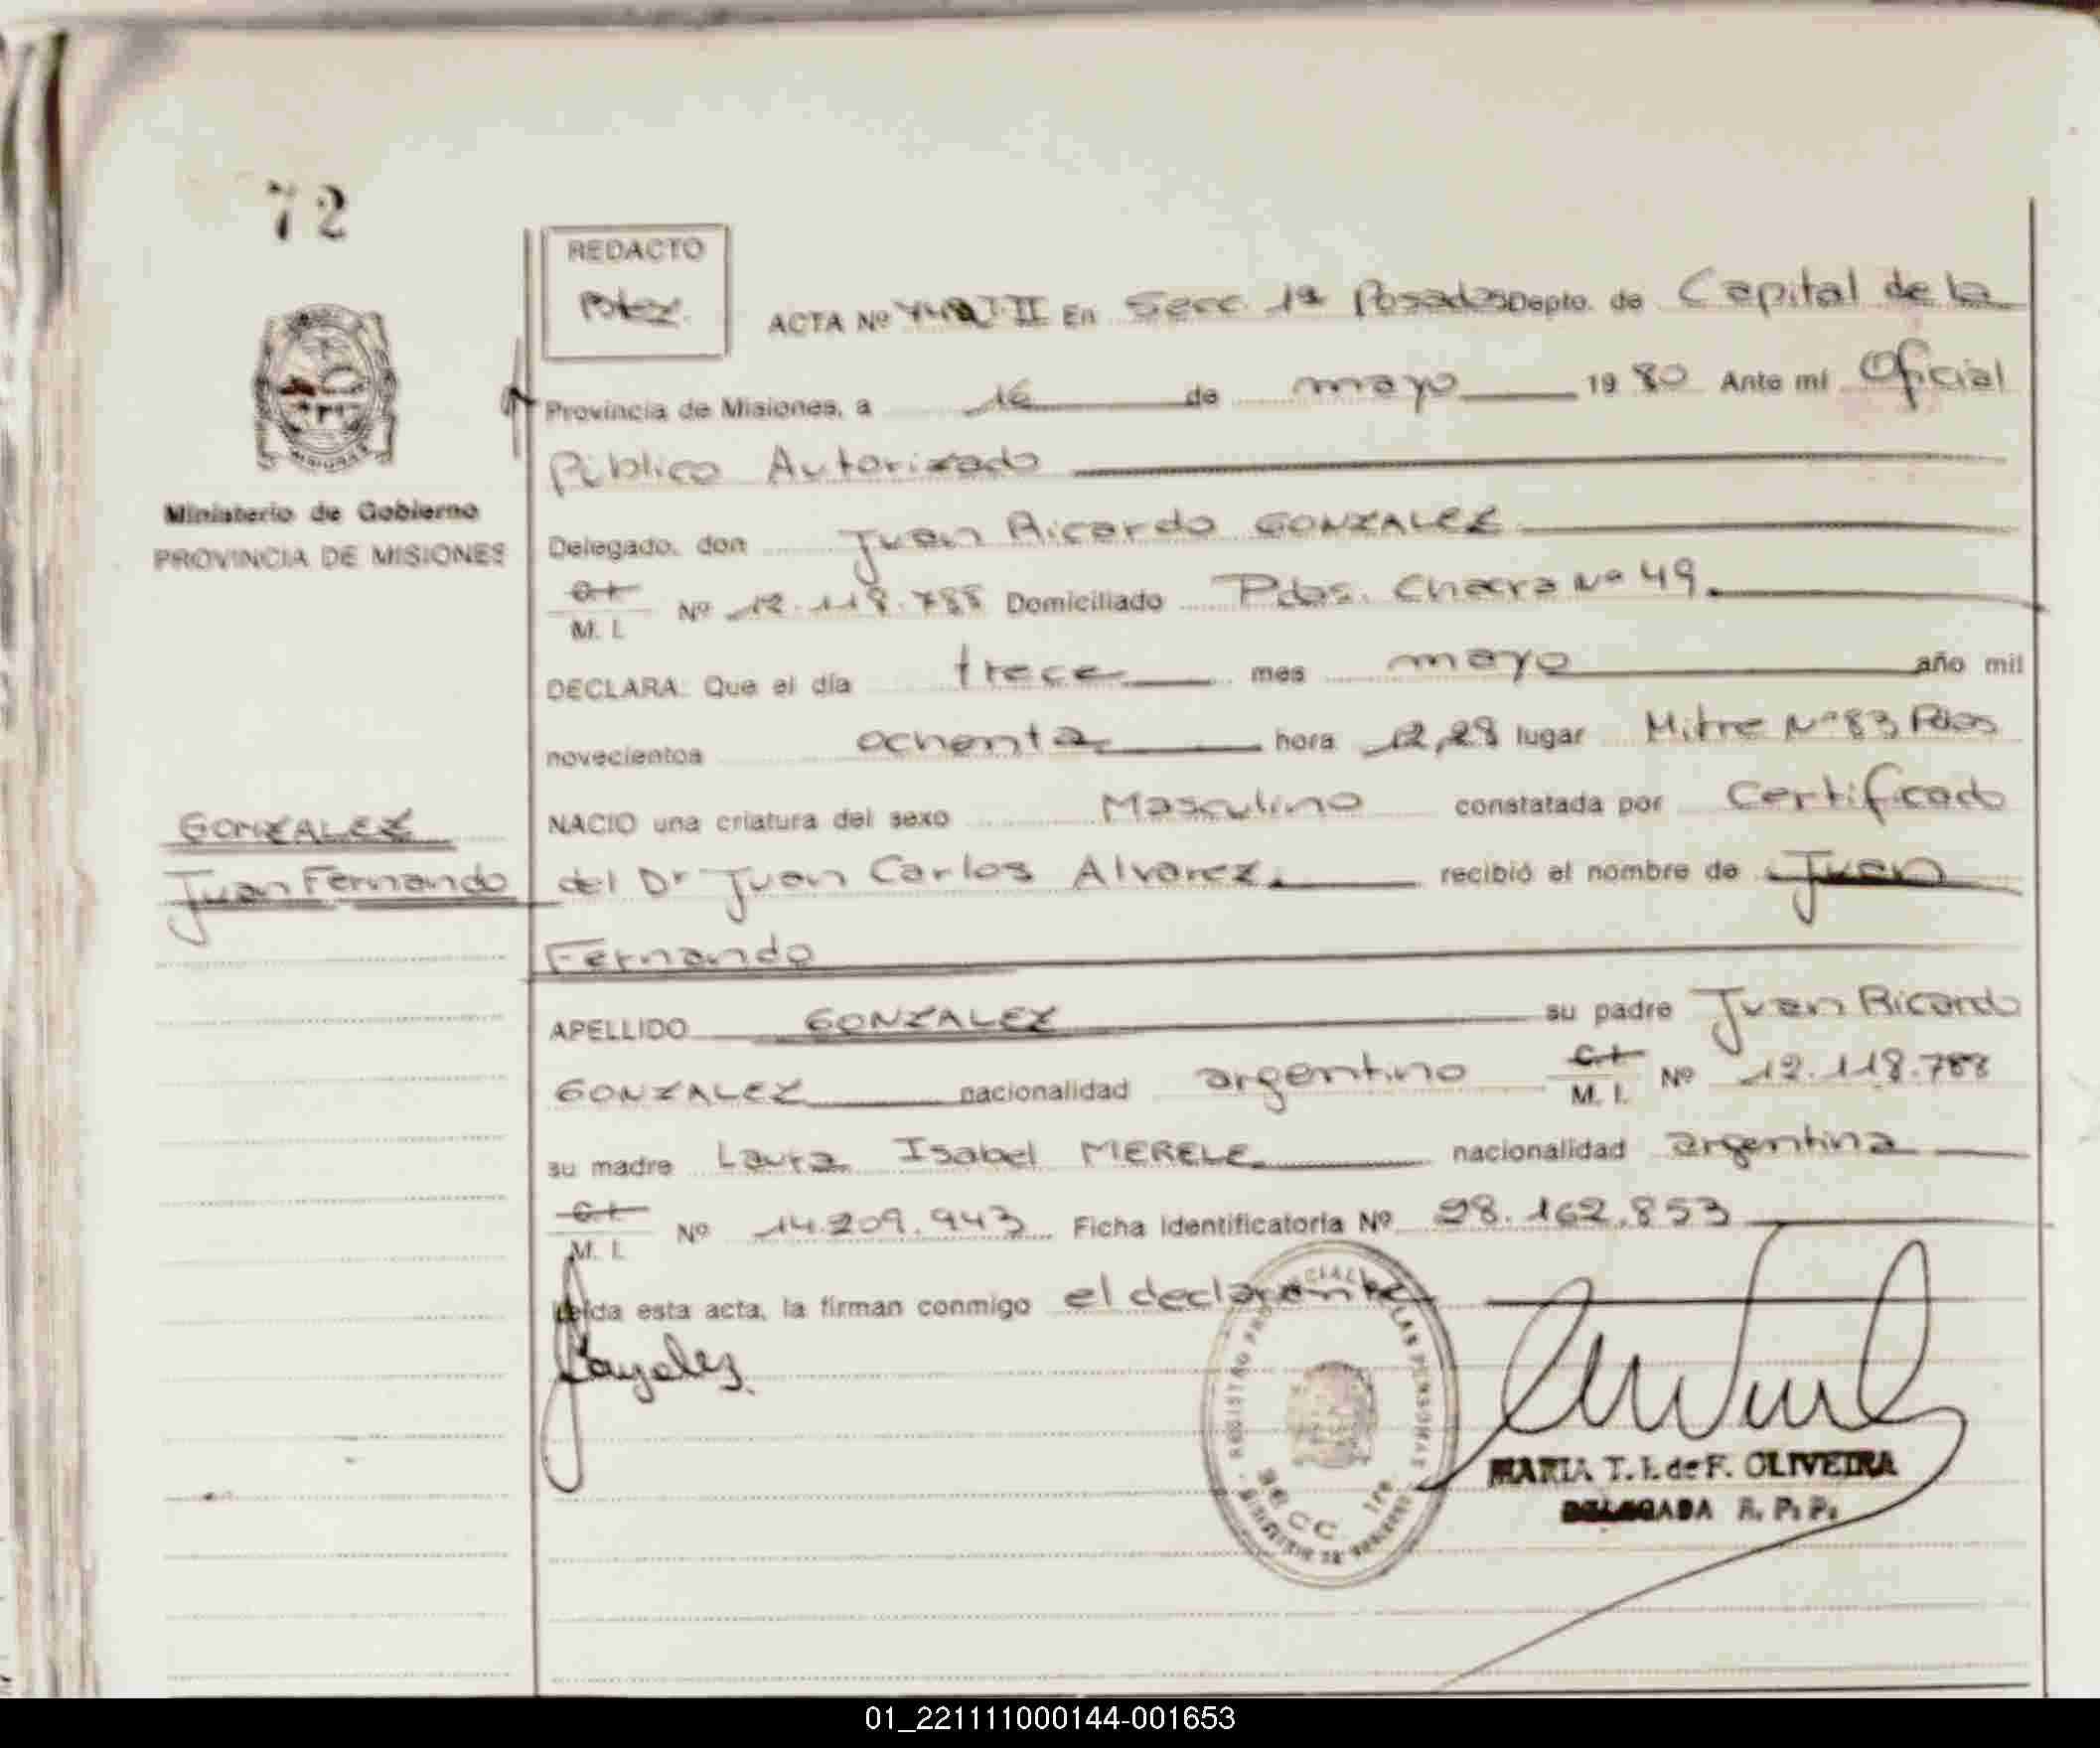 72
REDACTO
ACTA Nº En Secc. 1ª Posadas Depto. de Capital de la
Provincia de Misiones, a 16 de mayo 1980 Ante mí Oficial
Público Autorizado
MISIONES
Ministerio de Gobierno
PROVINCIA DE MISIONES
Delegado, don Juan Ricardo GONZALEZ
C.I.
M. I. Nº 12.118.788 Domiciliado Pdas. Chacra Nº 49.
DECLARA: Que el día trece mes mayo año mil
novecientos ochenta hora 12,28 lugar Mitre Nº 83 Pdas
NACIO una criatura del sexo Masculino constatada por Certificado
GONZALEZ
Juan Fernando
del Dr Juan Carlos Alvarez. recibió el nombre de Juan
Fernando
APELLIDO GONZALEZ su padre Juan Ricardo
GONZALEZ nacionalidad argentino C.I.
M. I. Nº 12.118.788
su madre Laura Isabel MERELE nacionalidad argentina
C.I.
M. I. Nº 14.209.943 Ficha identificatoria Nº 28.162.853
Leída esta acta, la firman conmigo el declarante
Gonzalez
REGISTRO PROVINCIAL DE LAS PERSONAS
SECC. 1ra
MINISTERIO DE GOBIERNO
MARIA T. I. de F. OLIVEIRA
DELEGADA R. P. P.
01_221111000144-001653